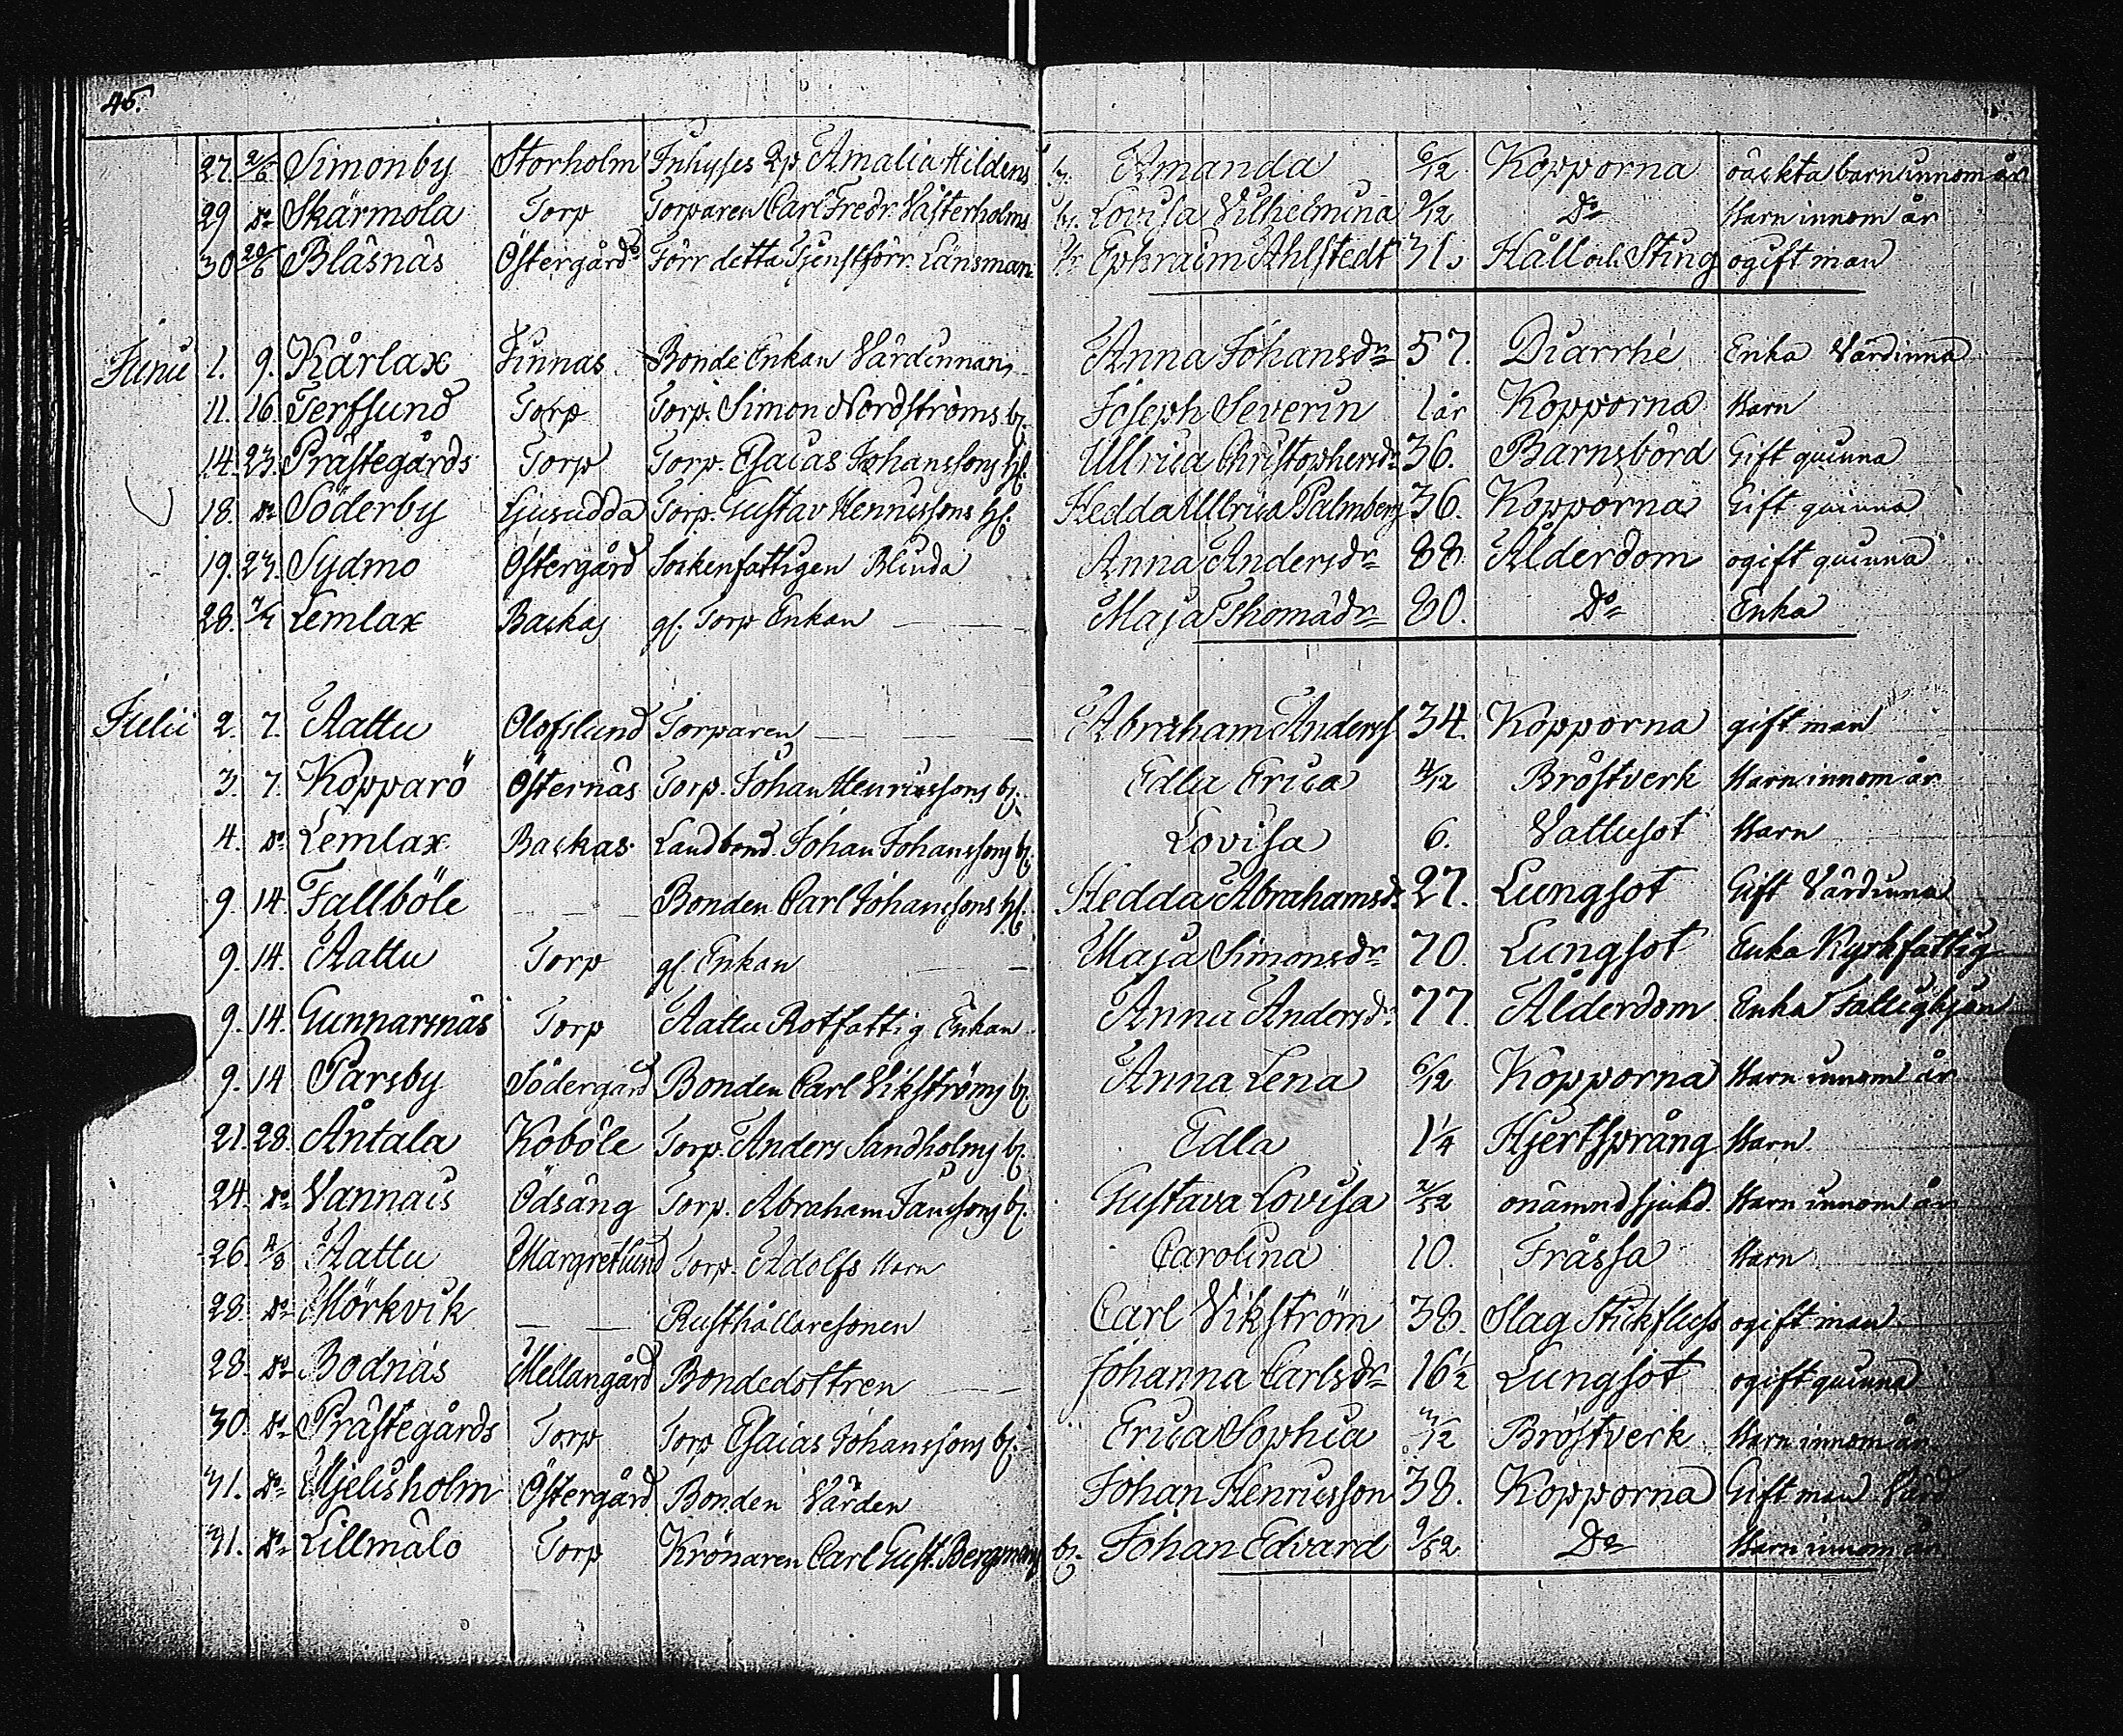 46.
27. 2/6 Simonby Storholm Inhyses Qp. Amalia Hildens b. Amanda 6/12 Kopporna oäckta barn innom år
29 Do Skärmola Torp Torparen Carl Fredr. Västerholms b. Lovisa Vilhelmina 9/12 Do Barn innom år
30 20/6 Bläsnäs Östergård Förr detta Tjenstförr. Länsman Ephraim Ahlstedt 31. Håll och Sting ogift man
Junii 1. 9. Kårlax Finnas Bonde Enkan Värdinnan Anna Johansdr 57. Diarrhé Enka Värdinna
11. 16. Terfsund Torp Torp. Simon Nordströms b. Joseph Severin 1 år Kopporna Barn
14. 23. Prästegårds Torp Torp. Esaias Johanssons h. Ullrica Christophersdr 36. Barnsbörd Gift quinna
18. Do Söderby Ljusudda Torp. Gustav Henricssons h. Hedda Ullrica Palmberg 36. Kopporna Gift quinna
19. 23. Sydmo Östergård Sockenfattigen Blinda Anna Andersdr 88. Ålderdom ogift quinna
28. 7/7 Lemlax Backas gl. Torp Enkan Maja Thomädr 80. Do Enka
Julii 2. 7. Aattu Olofslund Torparen Abraham Anderss 34. Kopporna gift man
3. 7. Kopparö Östernäs Torp. Johan Henricssons b. Edla Erica 4/12 Bröstverk Barn innom år
4. Do Lemlax Backas Landbond. Johan Johanssons b. Lovisa 6. Vattusot Barn
9. 14. Fallböle Bonden Carl Johanssons h. Hedda Abrahamsd. 27. Lungsot Gift Värdinna
9. 14. Aattu Torp gl. Enkan Maja Simonsdr 70. Lungsot Enka Kyrkfattig
9. 14. Gunnarsnäs Torp Aattu Rotfattig Enkan Anna Andersdr 77. Ålderdom Enka Fattighjon
9. 14 Parsby Södergård Bonden Carl Vikströms b. Anna Lena 6/12 Kopporna Barn innom år
21. 28. Åntala Koböle Torp. Anders Sandholms b. Edla 1 1/4 Hjertsprång Barn
24. Do Vannais Ödsäng Torp. Abraham Janssons b. Gustava Lovisa 2/52 onämnd sjukd. Barn innom år
26. 4/8 Aattu Margretlund Torp. Adolfs Barn Carolina 10. Frässa Barn
28. Do Mörkvik Rusthållaresonen Carl Vikström 38. Slag Stickfluss ogift man
28. Do Bodnäs Mellangård Bondedottren Johanna Carlsdr 16 1/2 Lungsot ogift quinna
30. Do Prästegårds Torp Torp Esaias Johanssons b. Erica Sophia /12 Bröstverk Barn innom år
31. Do Mjelisholm Östergård Bonden Värden Johan Henricsson 38. Kopporna Gift man Värd
31. Do Lillmälo Torp Krönaren Carl Gust. Bergmans b. Johan Edvard 9/52 Do Barn innom år